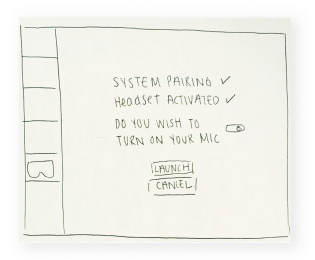 SYSTEM PAIRING ✓
HeadSET ACTIVATED ✓
DO YOU WISH TO
TURN ON YOUR MIC
LAUNCH
CANCEL